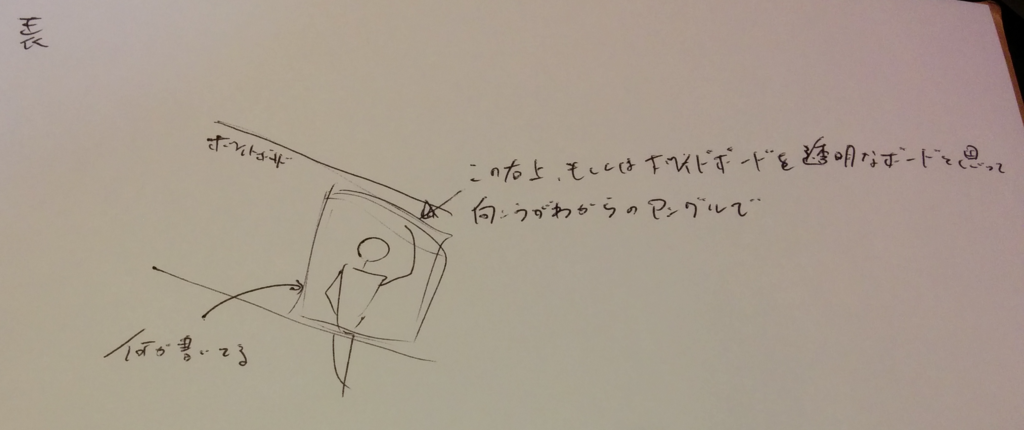 表
ホワイトボード
この右上、もしくはホワイトボードを透明なボードと思って
向こうがわからのアングルで
何か書いてる